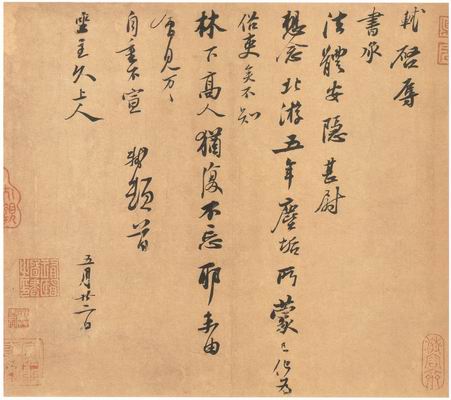 軾啓辱
書承
法體安隱甚慰
想念北游五年塵垢所蒙已化為
俗吏矣不知
林下高人猶復不忘耶未由
會見万〻
自重不宣 軾頓首
坐主久上人
五月廿二日